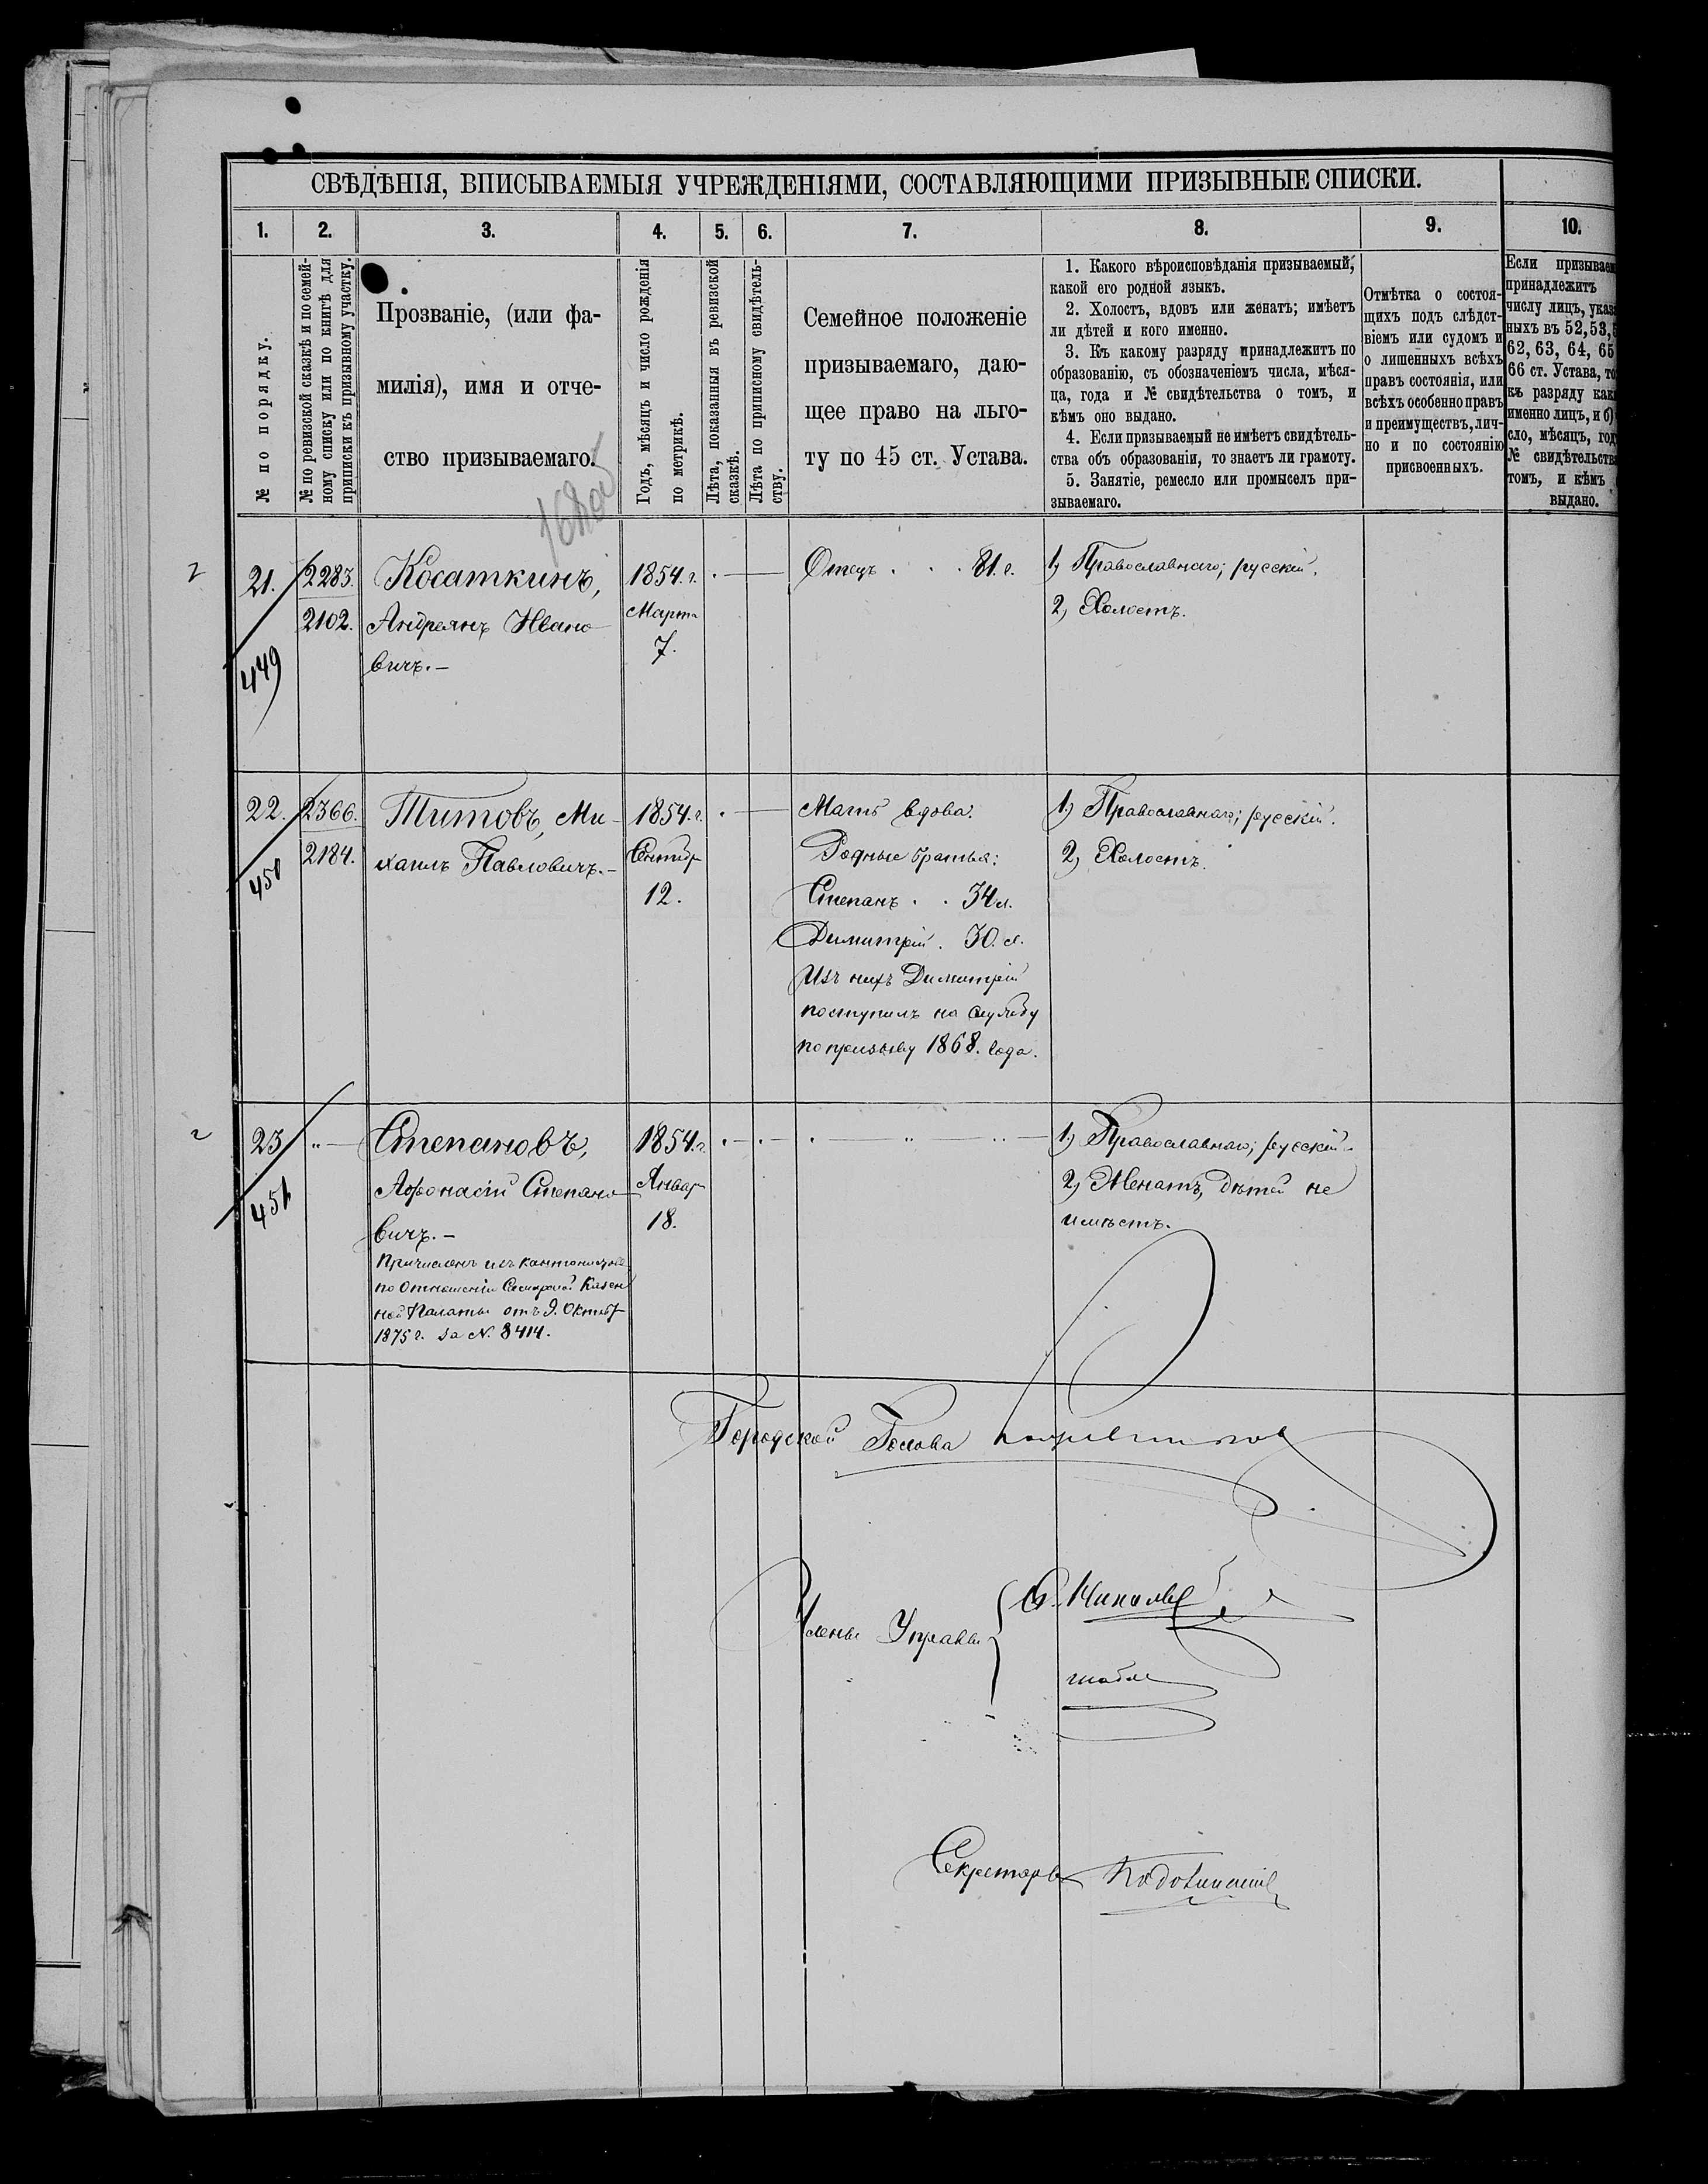 СВѢДѢНІЯ, ВПИСЫВАЕМЫЯ УЧРЕЖДЕНІЯМИ, СОСТАВЛЯЮЩИМИ ПРИЗЫВНЫЕ СПИСКИ.
1. 2. 3. 4. 5. 6. 7. 8. 9. 10.
№ по порядку.
№ по ревизской сказкѣ и по семей-
ному списку или по книгѣ для
приписки къ призывному участку.
Прозваніе, (или фа-
милія), имя и отче-
ство призываемаго.
Годъ, мѣсяцъ и число рожденія
по метрикѣ.
Лѣта, показанныя въ ревизской
сказкѣ.
Лѣта по приписному свидѣтель-
ству.
Семейное положеніе
призываемаго, даю-
щее право на льго-
ту по 45 ст. Устава.
1. Какого вѣроисповѣданія призываемый,
какой его родной языкъ.
2. Холостъ, вдовъ или женатъ; имѣетъ
ли дѣтей и кого именно.
3. Къ какому разряду принадлежитъ по
образованію, съ обозначеніемъ числа, мѣся-
ца, года и № свидѣтельства о томъ, и
кѣмъ оно выдано.
4. Если призываемый не имѣетъ свидѣтель-
ства объ образованіи, то знаетъ ли грамоту.
5. Занятіе, ремесло или промыселъ при-
зываемаго.
Отмѣтка о состоя-
щихъ подъ слѣдст-
віемъ или судомъ и
о лишенныхъ всѣхъ
правъ состоянія, или
всѣхъ особенно правъ
и преимуществъ, лич-
но и по состоянію
присвоенныхъ.
Если призываем
принадлежитъ
числу лицъ, указ
ныхъ въ 52, 53,
62, 63, 64, 65
66 ст. Устава, то
къ разряду как
именно лицъ, и б)
сло, мѣсяцъ, год
№ свидѣтельства
томъ, и кѣмъ
выдано.
21. 2283. Косаткинъ, 1854. г. Отецъ . . . 81. г. 1) Православнаго; русскій.
449 2102. Андреянъ Ивано- Марта 2) Холостъ.
вичъ.– 7.
22. 2366. Титовъ, Ми- 1854. г. Мать вдова. 1) Православнаго; русскій.
450 2184. хаилъ Павловичъ.– Сентябр Родные братья: 2) Холостъ.
12. Степанъ . . 34 л.
Димитрій . 30. л.
Изъ нихъ Димитрій
поступилъ на службу
по призыву 1868. года.
23 Степановъ, 1854. г. 1) Православнаго; русскій
451 Афонасій Степано- Январ 2) Женатъ, дѣтей не
вичъ.– 18. имѣетъ.
Причисленъ изъ кантонистовъ
по отношенію Казен
ной Палаты отъ 9. Октяб
1875 г. за N. 8414.
Городской Голова
Члены Управы
Секретарь